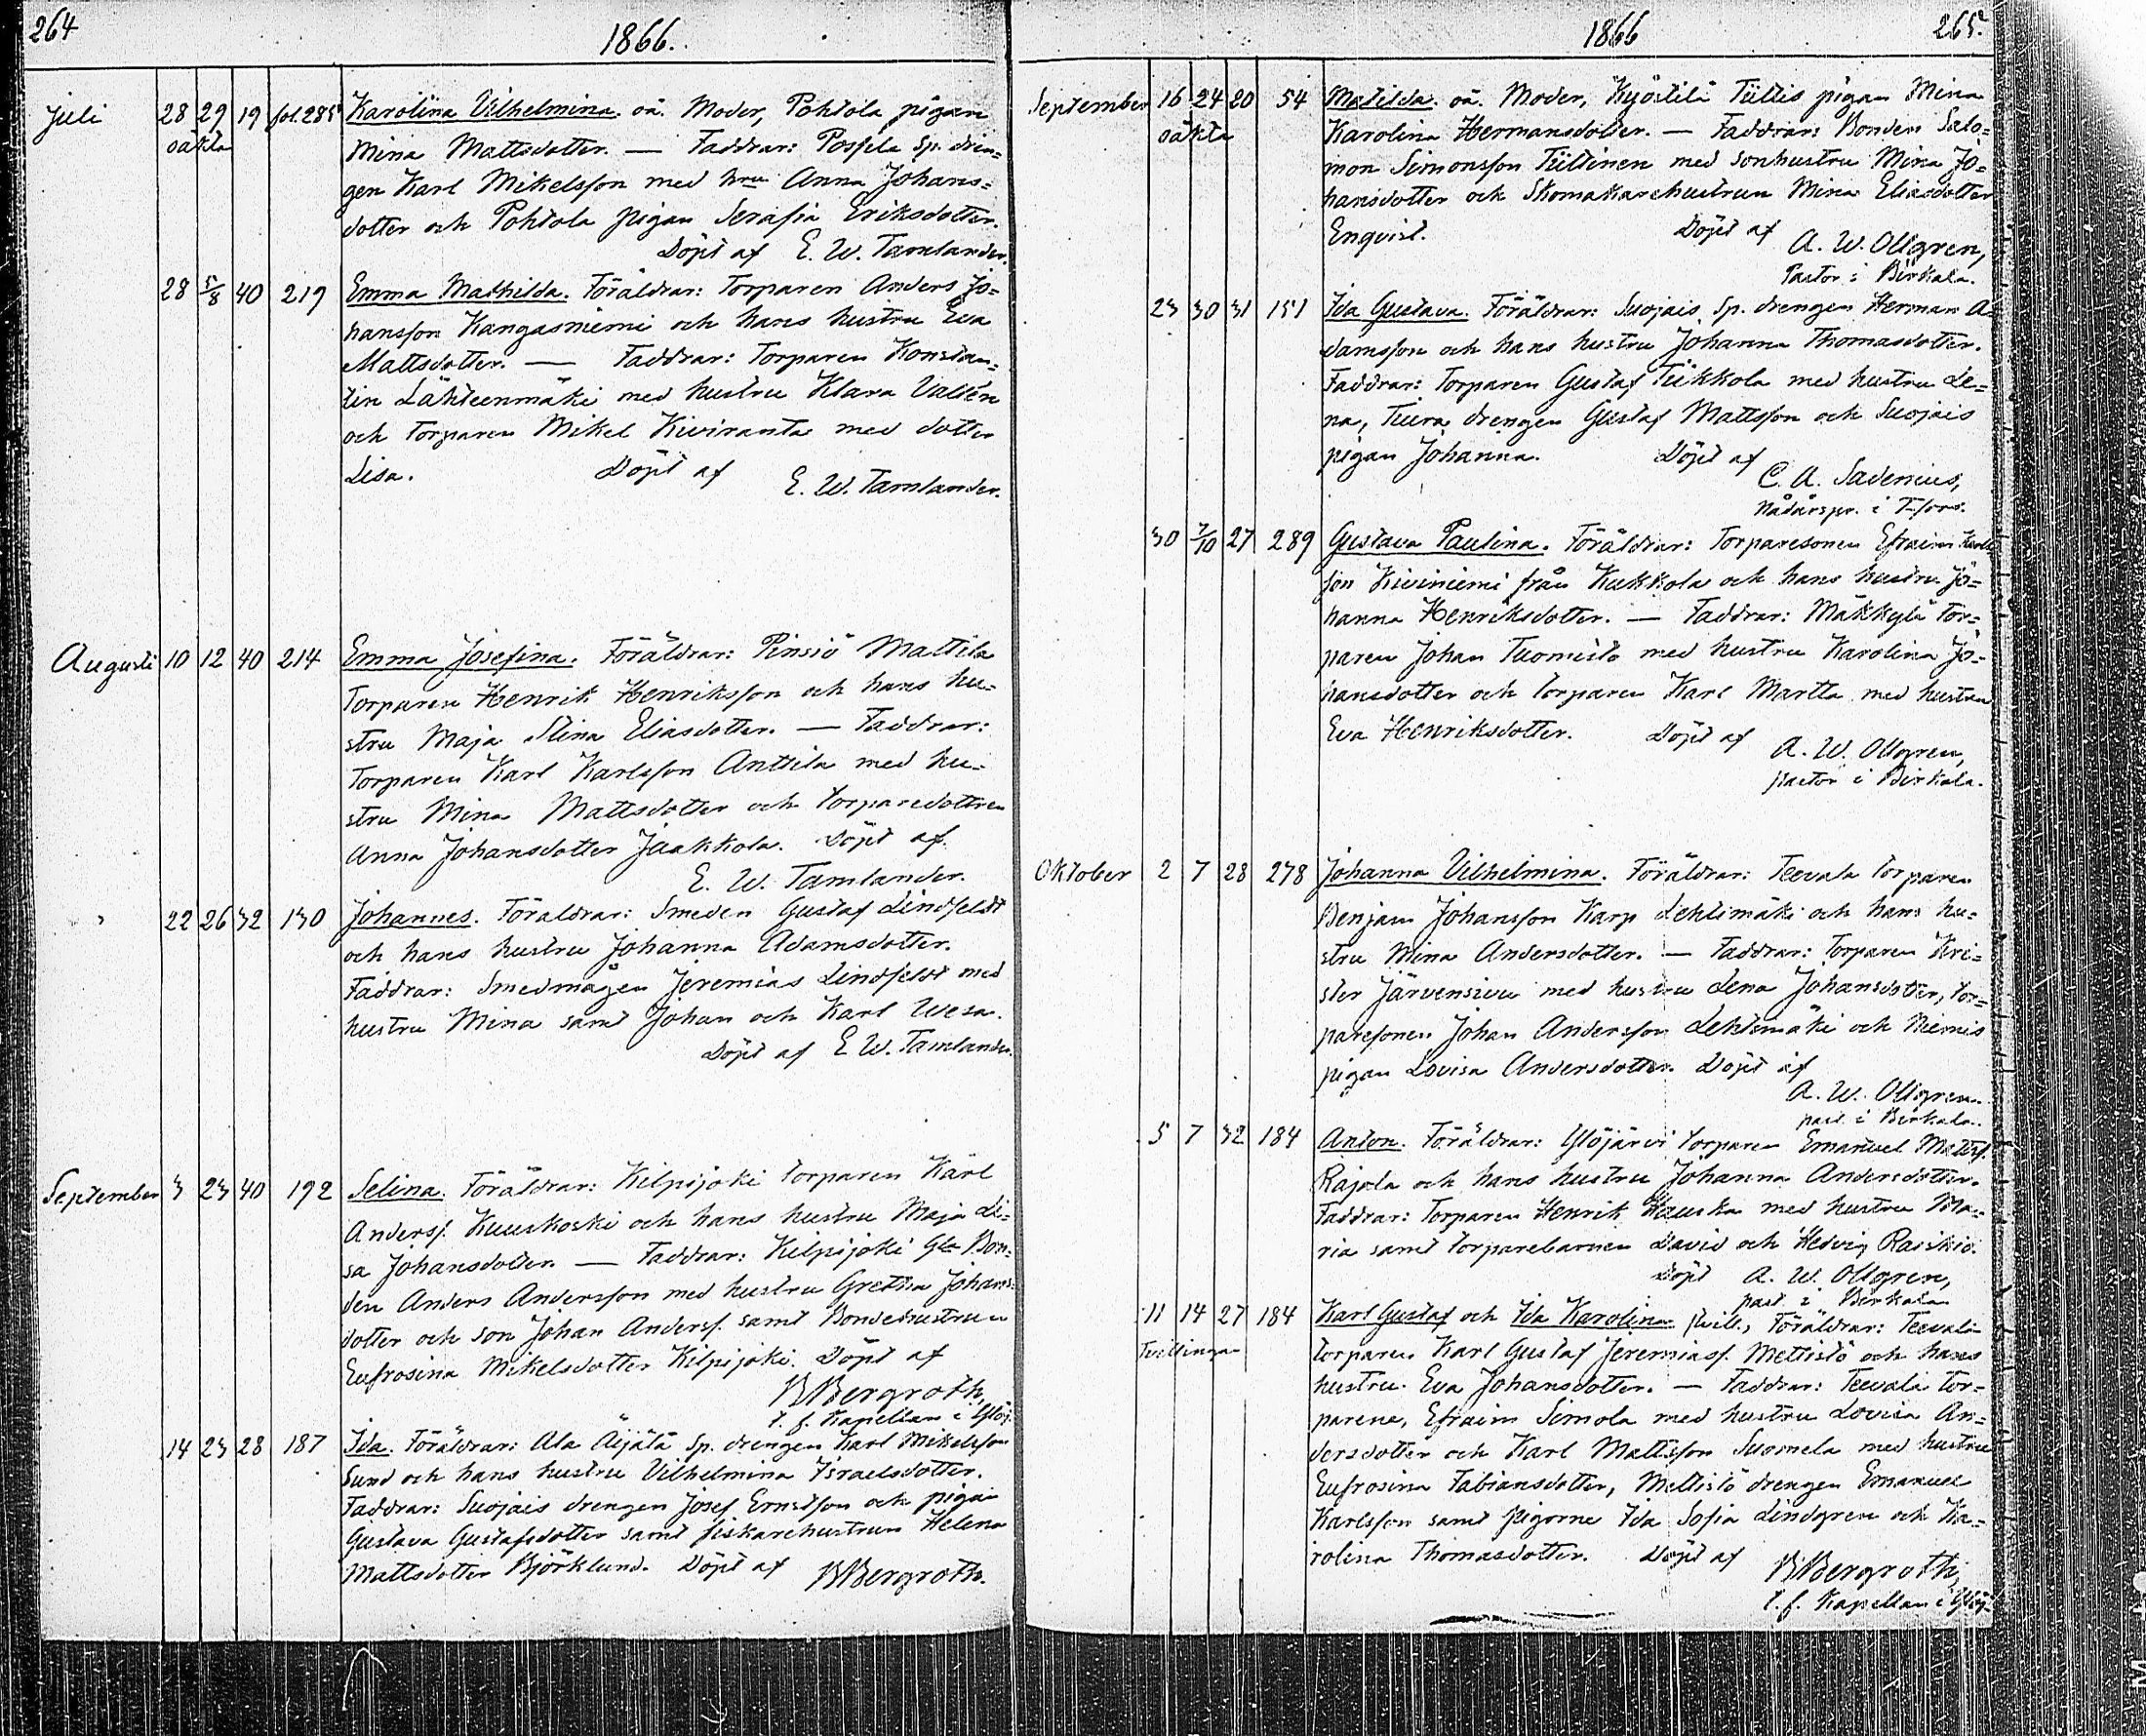 264
1866.
Juli 28 29 19 fol. 285 Karolina Vilhelmina. oä. Moder, Pohtola pigan
oäkta Mina Mattsdotter. — Faddrar: Possila Sp. drän=
gen Karl Mikelsson med hru Anna Johans=
dotter och Pohtola pigan Serafia Eriksdotter.
Döpt af E. W. Tamlander.
28 5/8 40 219 Emma Mathilda. Föräldrar: Torparen Anders Jo=
hansson Kangasniemi och hans hustru Eva
Mattsdotter. — Faddrar: Torparen Konstan=
tin Lähteenmäki med hustru Klara Valtén
och torparen Mikel Kiviranta med dotter
Lisa. Döpt af
E. W. Tamlander.
Augusti 10 12 40 214 Emma Josefina. Föräldrar: Pinsiö Mattila
Torparen Henrik Henriksson och hans hu=
stru Maja Stina Eliasdotter. — Faddrar:
Torparen Karl Karlsson Anttila med hu=
stru Mina Mattsdotter och torparedottren
Anna Johansdotter Jaakkola. Döpt af
E. W. Tamlander.
" 22 26 32 130 Johannes. Föräldrar: Smeden Gustaf Lindfeldt
och hans hustru Johanna Adamsdotter.
Faddrar: Smedmågen Jeremias Lindfeldt med
hustru Mina samt Johan och Karl Wesa.
Döpt af E W. Tamlander.
September 3 23 40 192 Selina. Föräldrar: Kilpijoki torparen Karl
Anderss. Kuuskoski och hans hustru Maja Li=
sa Johansdotter. — Faddrar: Kilpijoki Gla Bon=
den Anders Andersson med hustru Gretha Johans=
dotter och son Johan Anderss. samt Bondehustrun
Eufrosina Mikelsdotter Kilpijoki. Döpt af
B Bergroth,
t. f. Kapellan i Ylöj.
14 23 28 187 Ida. Föräldrar: Ala Äijälä Sp. drengen Karl Mikelsson
Sund och hans hustru Vilhelmina Israelsdotter.
Faddrar: Suojais drengen Josef Ernstsson och pigan
Gustava Gustafsdotter samt fiskarehustrun Helena
Mattsdotter Björklund. Döpt af B Bergroth.
1866 265.
September 16 24 20 54 Matilda. oä. Moder, Kyöstilä Tiittis pigan Mina
oäkta Karolina Hermansdotter. — Faddrar: Bonden Salo=
mon Simonsson Tiittinen med sonhustru Mina Jo=
hansdotter och Skomakarehustrun Mina Eliasdotter
Enqvist. Döpt af A. W. Ollgren,
Pastor i Birkala.
23 30 31 151 Ida Gustava. Föräldrar: Suojais Sp. drengen Herman A=
damsson och hans hustru Johanna Thomasdotter.
Faddrar: Torparen Gustaf Tiikkola med hustru Le=
na, Tiura drengen Gustaf Mattsson och Suojais
pigan Johanna. Döpt af
C. A. Sadenius,
Nådårspr. i T-fors.
30 7/10 27 289 Gustava Paulina. Föräldrar: Torparesonen Efraim Karls
son Kiviniemi från Kukkola och hans hustru Jo=
hanna Henriksdotter. — Faddrar: Mäkkylä tor=
paren Johan Tuomisto med hustru Karolina Jo=
hansdotter och torparen Karl Martta med hustru
Eva Henriksdotter. Döpt af
A. W. Ollgren,
pastor i Birkala.
Oktober 2 7 28 278 Johanna Vilhelmina. Föräldrar: Teevala torparen
Benjam Johansson Karp Lehtimäki och hans hu=
stru Mina Andersdotter. — Faddrar: Torparen Kri=
ster Järvensivu med hustru Lena Johansdotter, tor=
paresonen Johan Andersson Lehtimäki och Niemis
pigan Lovisa Andersdotter. Döpt af
A. W. Ollgren.
past. i Birkala.
5 7 32 184 Anton. Föräldrar: Ylöjärvi torparen Emanuel Matss.
Rajala och hans hustru Johanna Andersdotter.
Faddrar: Torparen Henrik Hauska med hustru Ma=
ria samt torparebarnen David och Hedvig Rasikio.
Döpt A. W. Ollgren,
past. i Birkala
11 14 27 184 Karl Gustaf och Ida Karolina (tvill., Föräldrar: Teevala
Tvillingar torparen Karl Gustaf Jeremiass. Mettistö och hans
hustru Eva Johansdotter. — Faddrar: Teevala tor=
parene, Efraim Simola med hustru Lovisa An=
dersdotter och Karl Mattsson Suomela med hustru
Eufrosina Fabiansdotter, Mettistö drengen Emanuel
Karlsson samt pigorne Ida Sofia Lindgren och Ka=
rolina Thomasdotter. Döpt af B Bergroth,
t. f. Kapellan i Ylöj.